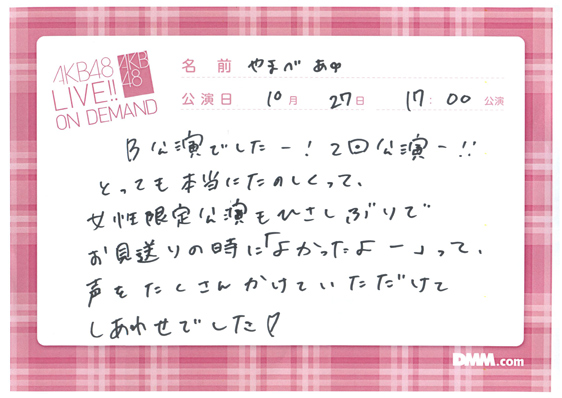 AKB48
LIVE!!
ON DEMAND
AKB
48
名前 やまべ あゆ
公演日 10月 27日 17:00 公演
B公演でしたー!2回公演ー!!
とっても本当にたのしくって、
女性限定公演もひさしぶりで
お見送りの時に「よかったよー」って、
声をたくさんかけていただけて
しあわせでした♡
DMM.com